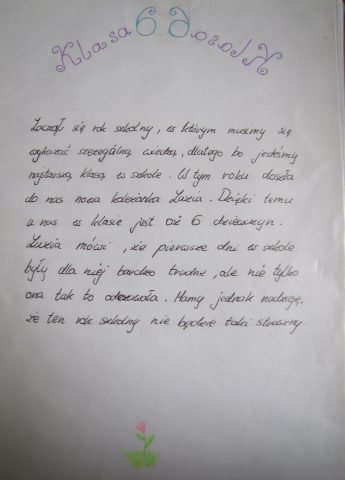 Klasa 6
Zaczął się rok szkolny, w którym musimy się
wykazać szczególną wiedzą, dlatego bo jesteśmy
najstarszą klasą w szkole. W tym roku doszła
do nas nowa koleżanka Luzia. Dzięki temu
u nas w klasie jest już 6 dziewczyn.
Luzia mówi, że pierwsze dni w szkole
były dla niej bardzo trudne, ale nie tylko
ona tak to odczuwała. Mamy jednak nadzieję,
że ten rok szkolny nie będzie taki straszny.